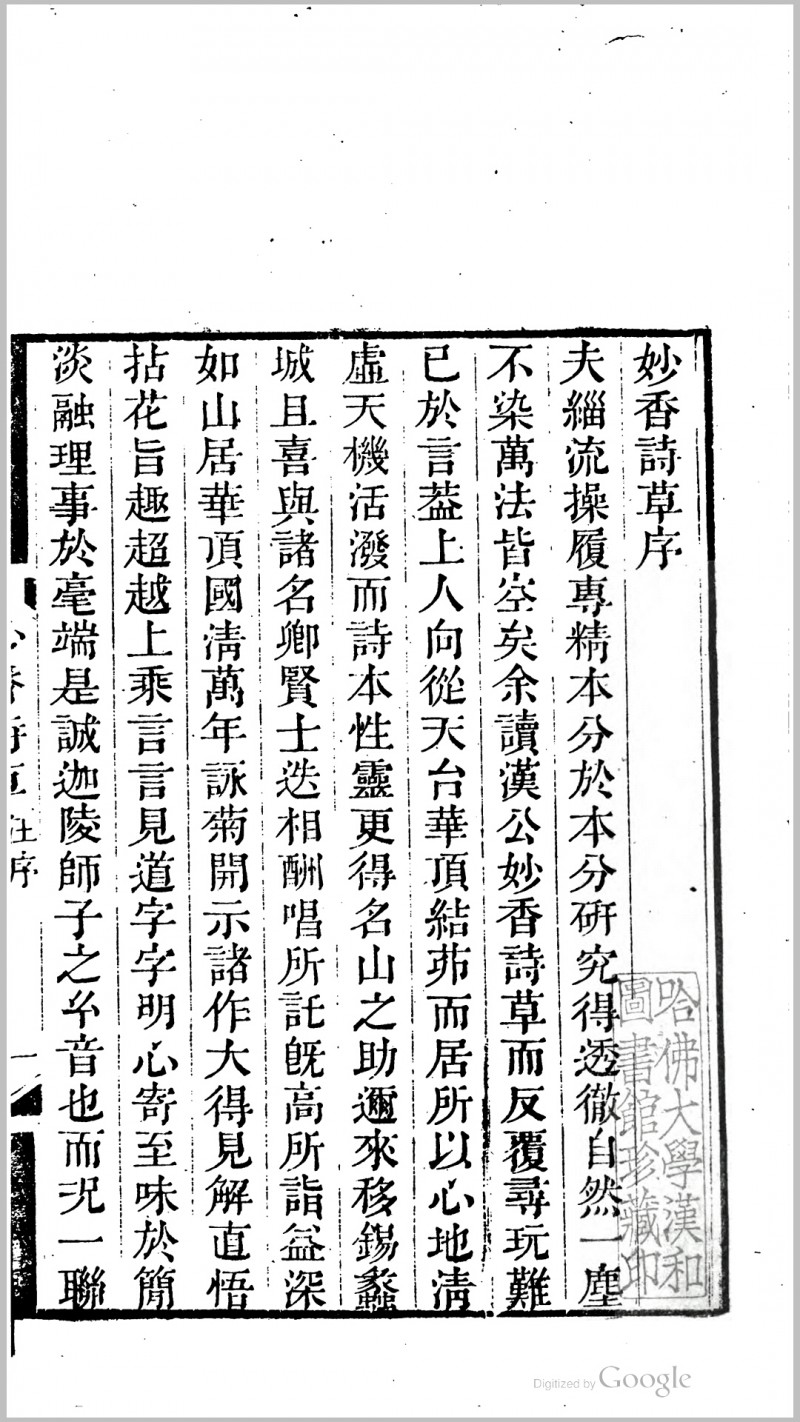 妙香詩草序
夫緇流操履專精本分於本分研究得透徹自然一塵
不染萬法皆空矣余讀漢公妙香詩草而反覆尋玩難
已於言葢上人向從天台華頂結茆而居所以心地淸
虛天機活潑而詩本性靈更得名山之助邇來移錫蠡
城且喜與諸名卿賢士迭相酬唱所託旣高所詣益深
如山居華頂國淸萬年詠菊開示諸作大得見解直悟
拈花旨趣超越上乘言言見道字字明心寄至味於簡
淡融理事於毫端是誠迦陵師子之㕕音也而況一聯
香詩草
序
一
哈佛大學漢和
圖書館珍藏印
Digitized by Google